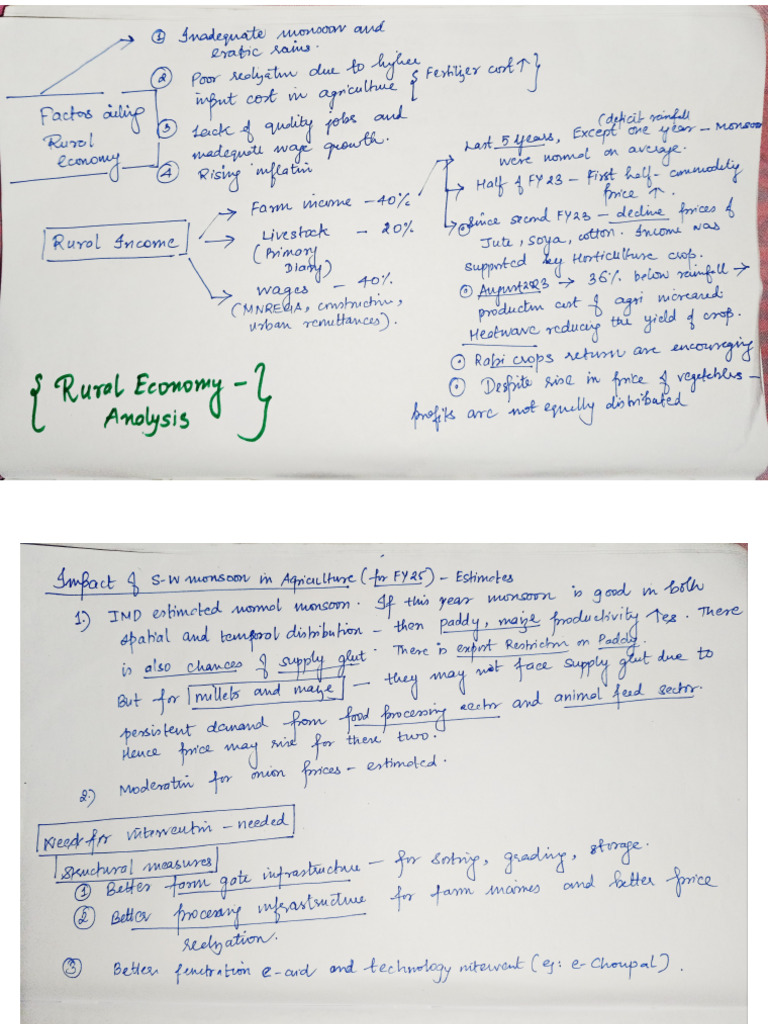 ① Inadequate monsoon and
eratic rains.
② Poor realization due to higher
input cost in agriculture { Fertilizer cost ↑ }
③ Lack of quality jobs and
inadequate wage growth.
④ Rising inflation
Factos ailing
Rural
economy
Rural Income
Farm income - 40%
Livestock - 20%
(Primary
Diary)
wages - 40%
(MNREGA, construction,
urban remittances).
(deficit rainfall
Last 5 years, Except one year - Monsoon
were normal on average.
Half of FY23 - First half - commodity
price ↑.
Since second FY23 - decline prices of
Jute, Soya, cotton. Income was
supported by Horticulture crop.
August 2023 → 36% below rainfall →
production cost of agri increased
Heatwave reducing the yield of crop.
Rabi crops return are encouraging
Despite rise in price of vegetables -
profits are not equally distributed
{ Rural Economy - }
Analysis
Impact of S-W monsoon in Agriculture (for FY25) - Estimates
1.) IMD estimated normal monsoon. If this year monsoon is good in both
spatial and temporal distribution - then paddy, maize productivity ↑es. There
is also chances of supply glut. There is export Restriction on Paddy.
But for millets and maize - they may not face supply glut due to
persistent demand from food processing sector and animal feed sector.
Hence price may rise for there two.
2.) Moderation for onion prices - estimated.
Need for intervention - needed
Structural measures
① Better farm gate infrastructure - for sorting, grading, storage.
② Better processing infrastructure for farm incomes and better price
realization.
③ Better penetration e-aid and technology intervent (eg: e-Choupal).